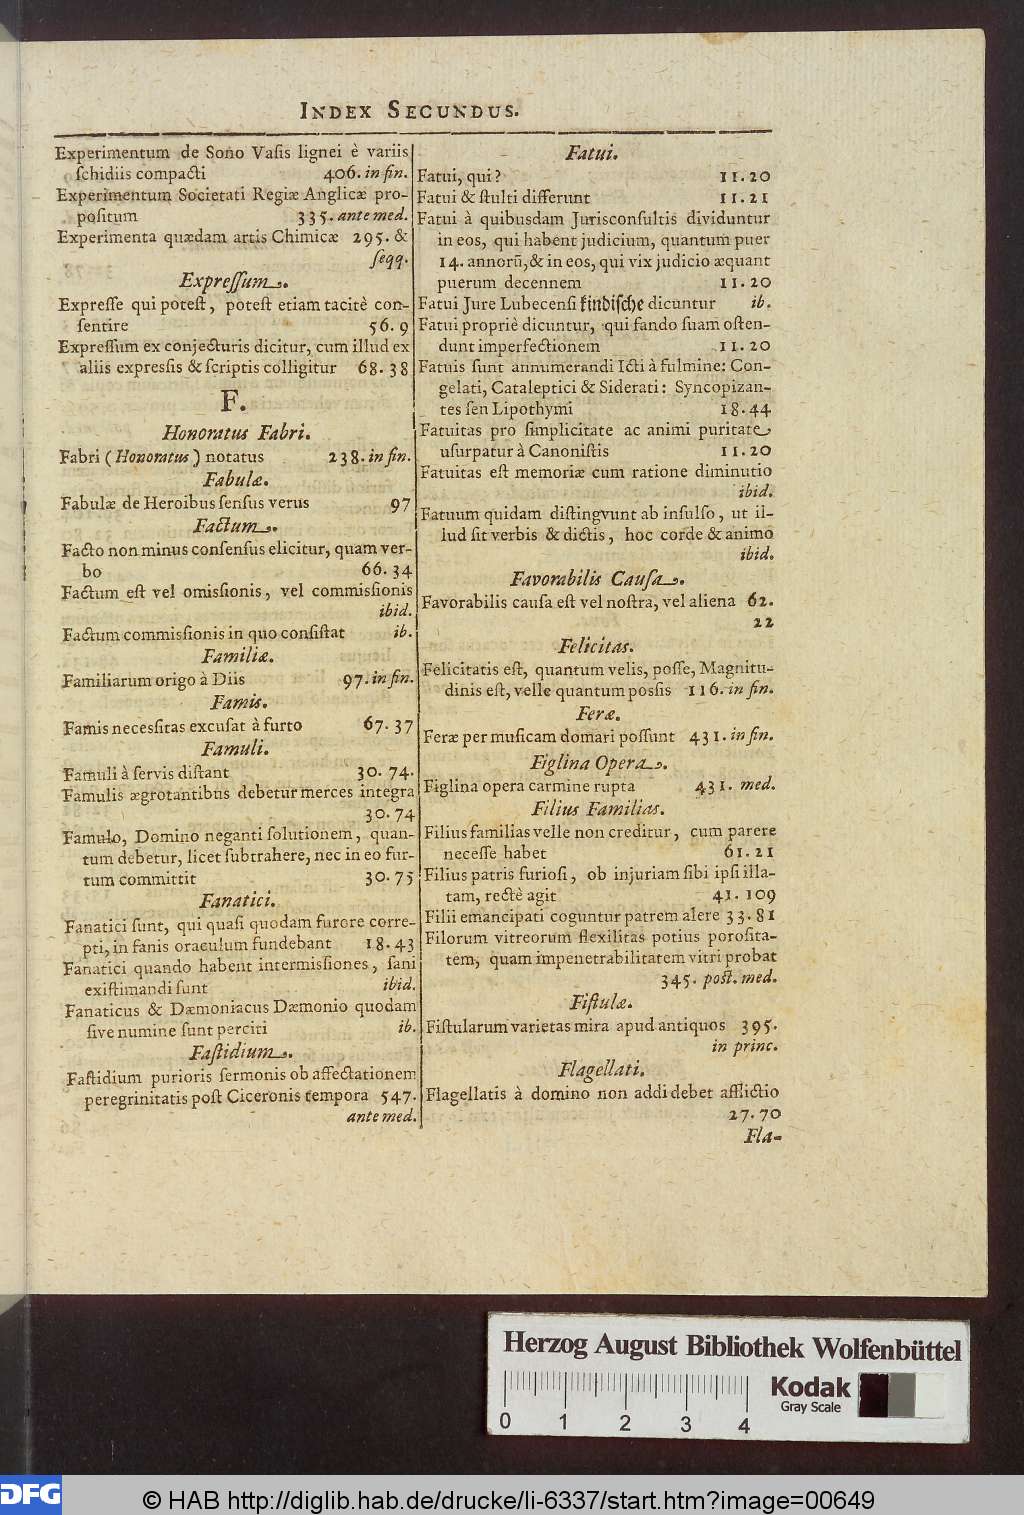 INDEX SECUNDUS.
Experimentum de Sono Vasis lignei è variis
schidiis compacti 406. in fin.
Experimentum Societati Regiæ Anglicæ pro-
positum 335. ante med.
Experimenta quædam artis Chimicæ 295. &
seqq.
Expressum.
Expresse qui potest, potest etiam tacitè con-
sentire 56. 9
Expressum ex conjecturis dicitur, cum illud ex
aliis expressis & scriptis colligitur 68. 38
F.
Honoratus Fabri.
Fabri (Honoratus) notatus 238. in fin.
Fabulæ.
Fabulæ de Heroibus sensus verus 97
Factum.
Facto non minus consensus elicitur, quam ver-
bo 66. 34
Factum est vel omissionis, vel commissionis
ibid.
Factum commissionis in quo consistat ib.
Familiæ.
Familiarum origo à Diis 97. in fin.
Famis.
Famis necessitas excusat à furto 67. 37
Famuli.
Famuli à servis distant 30. 74.
Famulis ægrotantibus debetur merces integra
30. 74
Famulo, Domino neganti solutionem, quan-
tum debetur, licet subtrahere, nec in eo fur-
tum committit 30. 75
Fanatici.
Fanatici sunt, qui quasi quodam furore corre-
pti, in fanis oraculum fundebant 18. 43
Fanatici quando habent intermissiones, sani
existimandi sunt ibid.
Fanaticus & Dæmoniacus Dæmonio quodam
sive numine sunt perciti ib.
Fastidium.
Fastidium purioris sermonis ob affectationem
peregrinitatis post Ciceronis tempora 547.
ante med.
Fatui.
Fatui, qui? 11. 20
Fatui & stulti differunt 11. 21
Fatui à quibusdam Jurisconsultis dividuntur
in eos, qui habent judicium, quantum puer
14. annorū, & in eos, qui vix judicio æquant
puerum decennem 11. 20
Fatui Jure Lubecensi kindische dicuntur ib.
Fatui propriè dicuntur, qui fando suam osten-
dunt imperfectionem 11. 20
Fatuis sunt annumerandi Icti à fulmine: Con-
gelati, Cataleptici & Siderati: Syncopizan-
tes seu Lipothymi 18. 44
Fatuitas pro simplicitate ac animi puritate
usurpatur à Canonistis 11. 20
Fatuitas est memoriæ cum ratione diminutio
ibid.
Fatuum quidam distingvunt ab insulso, ut il-
lud sit verbis & dictis, hoc corde & animo
ibid.
Favorabilis Causa.
Favorabilis causa est vel nostra, vel aliena 62.
22
Felicitas.
Felicitatis est, quantum velis, posse, Magnitu-
dinis est, velle quantum possis 116. in fin.
Feræ.
Feræ per musicam domari possunt 431. in fin.
Figlina Opera.
Figlina opera carmine rupta 431. med.
Filius Familias.
Filius familias velle non creditur, cum parere
necesse habet 61. 21
Filius patris furiosi, ob injuriam sibi ipsi illa-
tam, rectè agit 41. 109
Filii emancipati coguntur patrem alere 33. 81
Filorum vitreorum flexilitas potius porosita-
tem, quam impenetrabilitatem vitri probat
345. post. med.
Fistulæ.
Fistularum varietas mira apud antiquos 395.
in princ.
Flagellati.
Flagellatis à domino non addi debet afflictio
27. 70
Fla-
Herzog August Bibliothek Wolfenbüttel
Kodak
Gray Scale
0 1 2 3 4
DFG
© HAB http://diglib.hab.de/drucke/li-6337/start.htm?image=00649